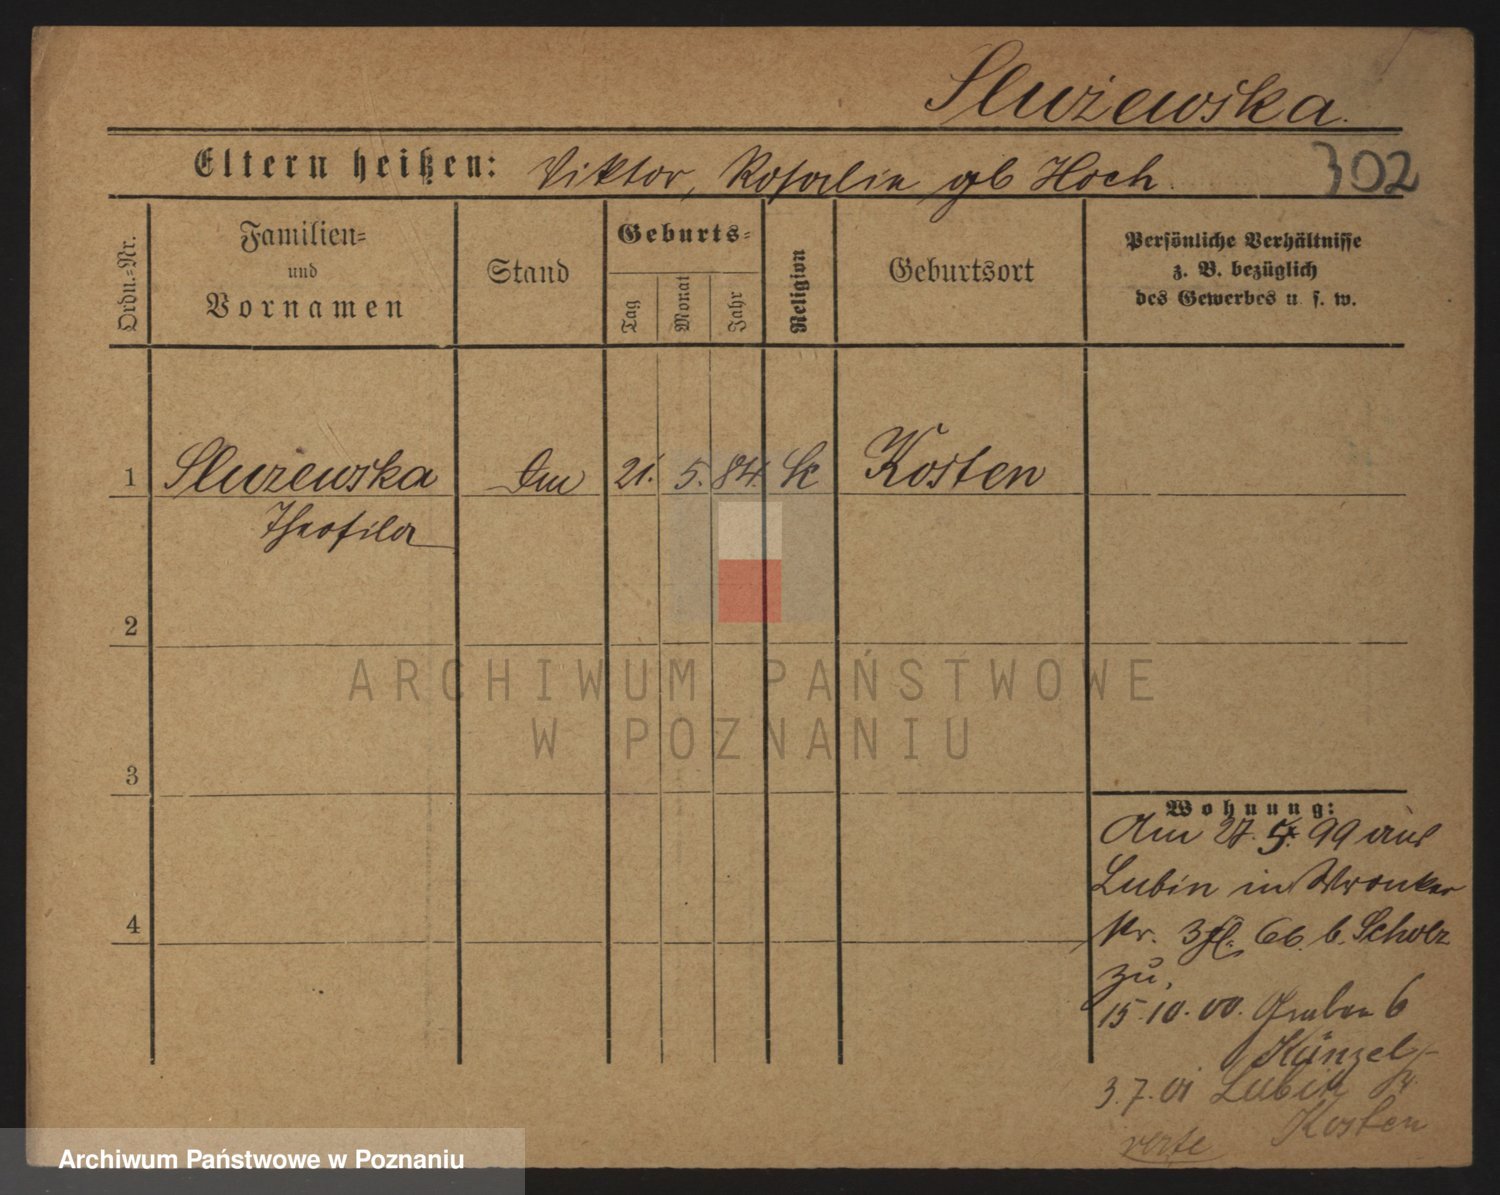 Slużewska.
Eltern heißen: Viktor, Rosalie gb Hoch.
302
Ordn.=Nr.
Familien=
und
Vornamen
Stand
Geburts=
Tag
Monat
Jahr
Religion
Geburtsort
Persönliche Verhältnisse
z. B. bezüglich
des Gewerbes u. s. w.
1 Sluzewska 21. 5. 84. k Kosten
Theofila
2
ARCHIWUM PAŃSTWOWE
W POZNANIU
3
Wohnung:
Am 27. 5. 99 aus
Lubin in Wronker
str. 3 b. Scholz
zu,
4
15.10.00. Graben 6
Künzel
3.7.01 Lubin
Kosten
verte
Archiwum Państwowe w Poznaniu